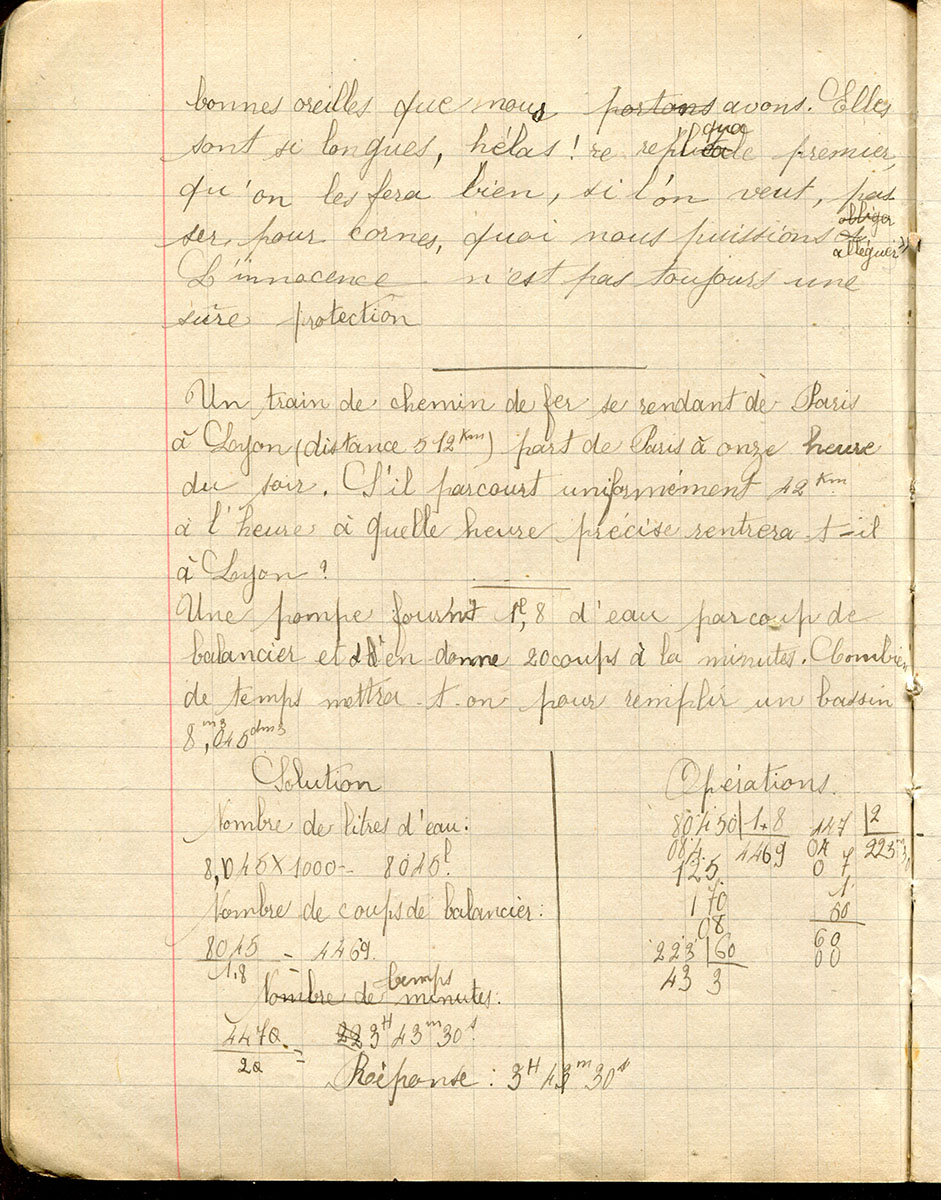 bonnes oreilles que nous portons avons. Elles
sont si longues, hélas! re répliqua le premier,
qu'on les fera bien, si l'on veut, pas
ser, pour cornes, quoi nous puissions obliger
alléguer"
L'innocence n'est pas toujours une
sûre protection
Un train de chemin de fer se rendant de Paris
à Lyon (distance 512 Km) part de Paris à onze heure
du soir. S'il parcourt uniformément 42 Km
à l'heure à quelle heure précise rentrera-t-il
à Lyon?
Une pompe fournit 1l,8 d'eau par coup de
balancier et l'en donne 20 coups à la minutes. Combien
de temps mettra-t-on pour remplir un bassin
8m3,045dm3
Solution
Opérations.
Nombre de litres d'eau:
80450 | 1,8 447 | 2
084 4469 04 223m
8,045 X 1000 = 8045l.
125 0 7
Nombre de coups de balancier:
170 1
08 60
8045 = 4469.
1,8
223 | 60 60
43 3 00
Nombre de temps minutes:
4470 = 223H 43m 30s
20
Réponse: 3H 43m 30s